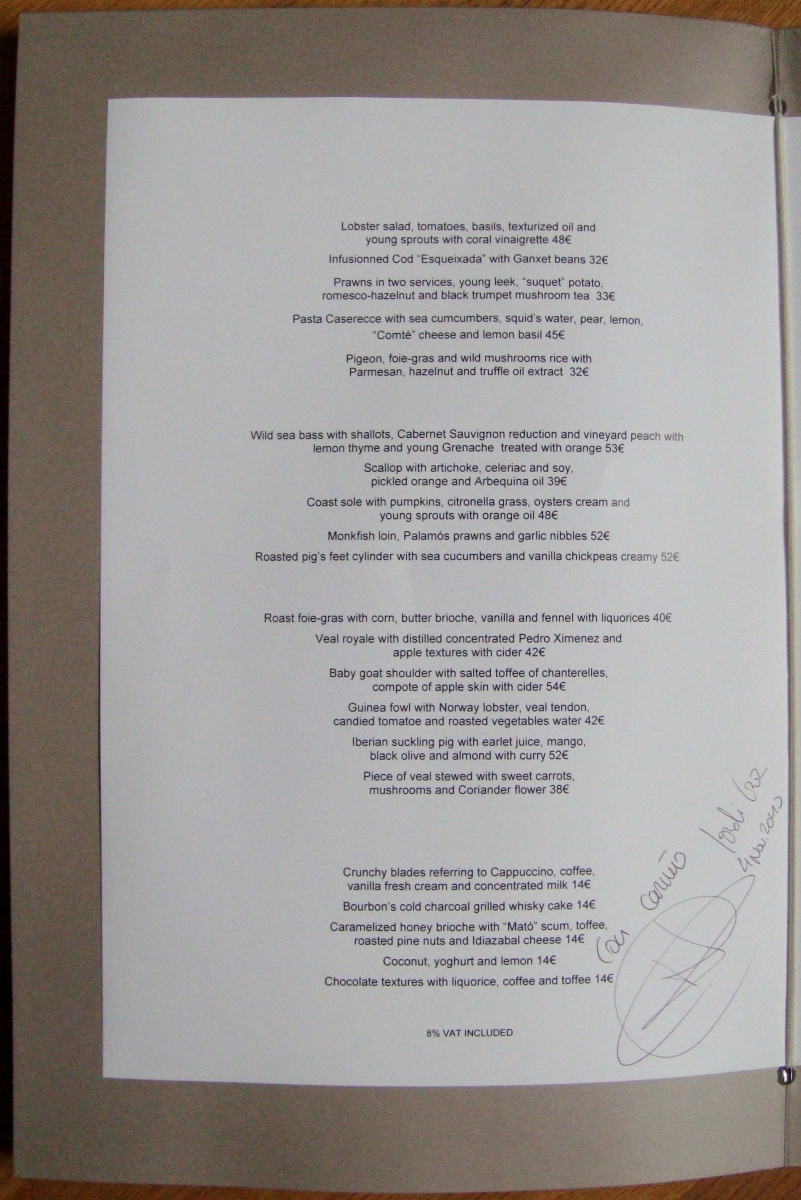 Lobster salad, tomatoes, basils, texturized oil and
young sprouts with coral vinaigrette 48€
Infusionned Cod “Esqueixada” with Ganxet beans 32€
Prawns in two services, young leek, “suquet” potato,
romesco-hazelnut and black trumpet mushroom tea 33€
Pasta Caserecce with sea cumcumbers, squid’s water, pear, lemon,
“Comté” cheese and lemon basil 45€
Pigeon, foie-gras and wild mushrooms rice with
Parmesan, hazelnut and truffle oil extract 32€
Wild sea bass with shallots, Cabernet Sauvignon reduction and vineyard peach with
lemon thyme and young Grenache treated with orange 53€
Scallop with artichoke, celeriac and soy,
pickled orange and Arbequina oil 39€
Coast sole with pumpkins, citronella grass, oysters cream and
young sprouts with orange oil 48€
Monkfish loin, Palamós prawns and garlic nibbles 52€
Roasted pig’s feet cylinder with sea cucumbers and vanilla chickpeas creamy 52€
Roast foie-gras with corn, butter brioche, vanilla and fennel with liquorices 40€
Veal royale with distilled concentrated Pedro Ximenez and
apple textures with cider 42€
Baby goat shoulder with salted toffee of chanterelles,
compote of apple skin with cider 54€
Guinea fowl with Norway lobster, veal tendon,
candied tomatoe and roasted vegetables water 42€
Iberian suckling pig with earlet juice, mango,
black olive and almond with curry 52€
Piece of veal stewed with sweet carrots,
mushrooms and Coriander flower 38€
Crunchy blades referring to Cappuccino, coffee,
vanilla fresh cream and concentrated milk 14€
Bourbon’s cold charcoal grilled whisky cake 14€
Caramelized honey brioche with “Mató” scum, toffee,
roasted pine nuts and Idiazabal cheese 14€
Coconut, yoghurt and lemon 14€
Chocolate textures with liquorice, coffee and toffee 14€
8% VAT INCLUDED
Con cariño Jordi Cruz